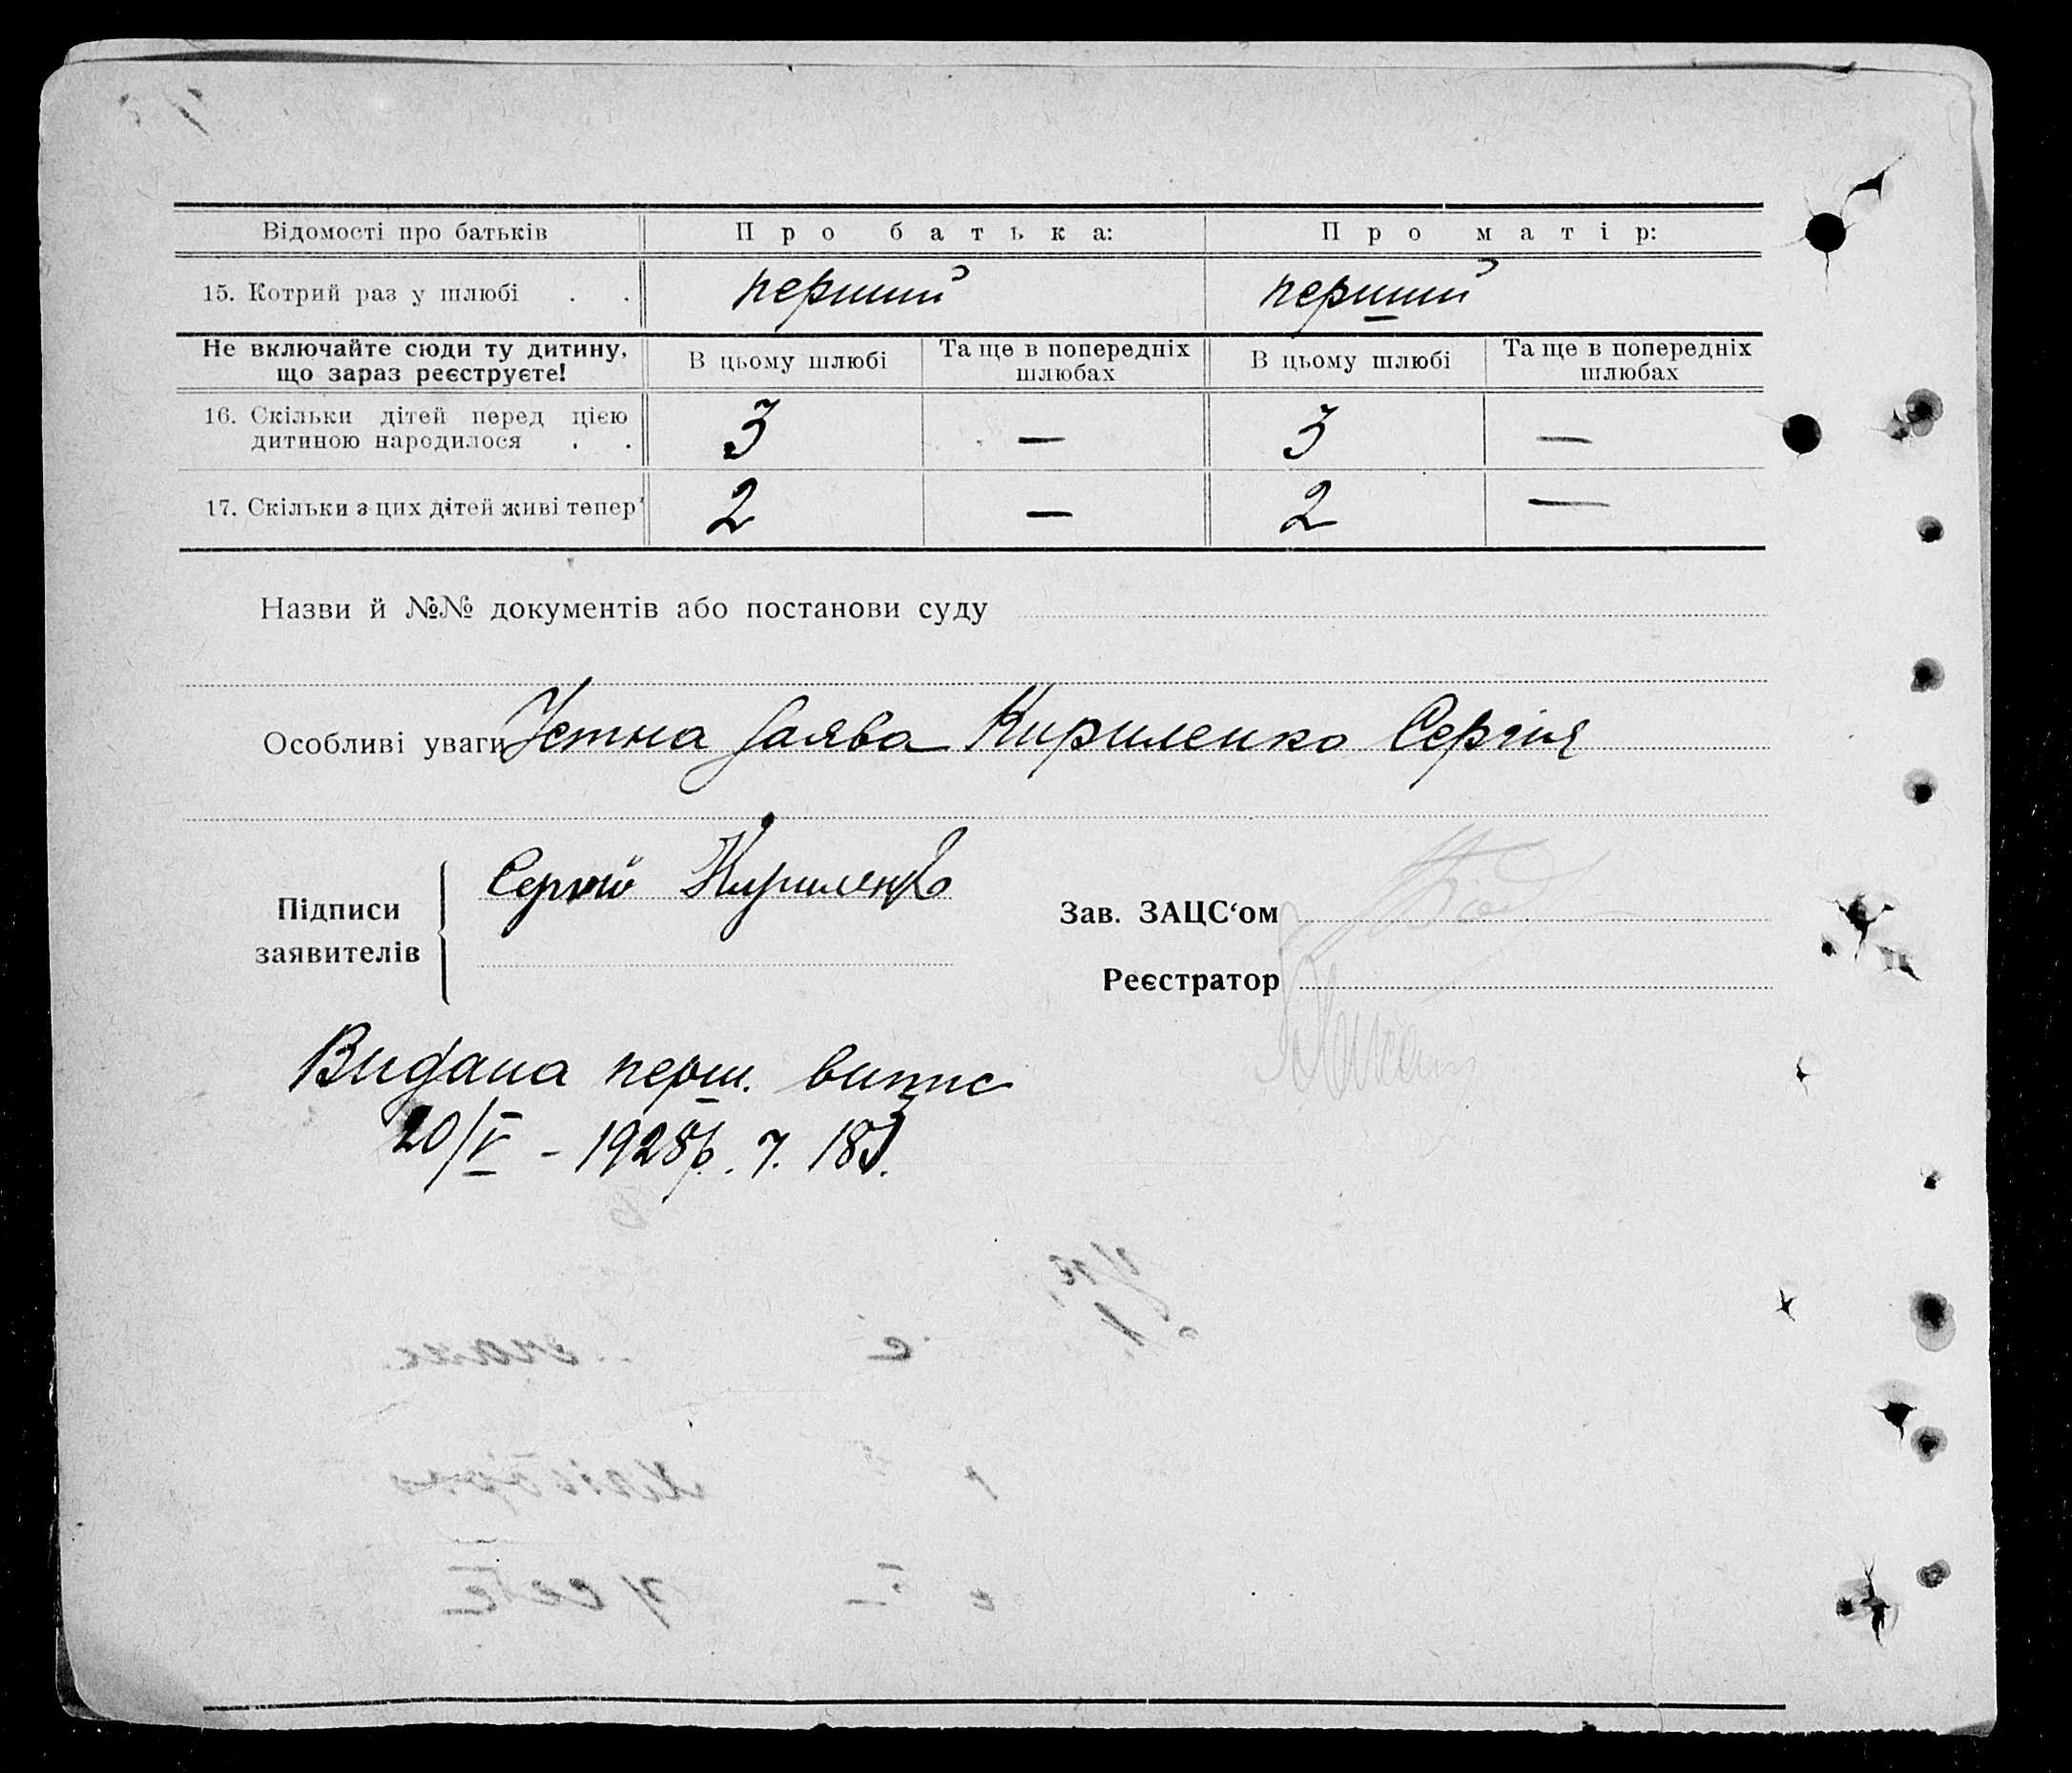 Відомості про батьків Про батька: Про матір:
15. Котрий раз у шлюбі . . перший перший
Не включайте сюди ту дитину, що зараз реєструєте! В цьому шлюбі Та ще в попередніх шлюбах В цьому шлюбі Та ще в попередніх шлюбах
16. Скільки дітей перед цією дитиною народилося . . 3 — 3 —
17. Скільки з цих дітей живі тепер 2 — 2 —
Назви й №№ документів або постанови суду
Особливі уваги Устна заява Кириленко Сергія
Підписи заявителів Сергій Кириленко
Зав. ЗАЦС‘ом
Реєстратор
Видана перш. випис
20/V - 1928р.